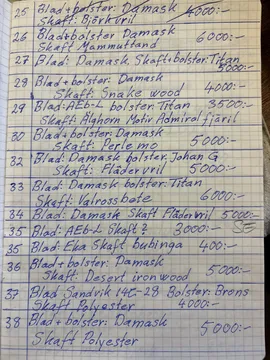 25 Blad + bolster: Damask 4000:-
Skaft: Björkvril
26 Blad+bolster Damask
Skaft Mammuttand 6000:-
27 Blad: Damask. Skaft+bolster: Titan
5000:-
28 Blad+bolster: Damask
Skaft: Snake wood 4000:-
29 Blad: AEB-L bolster: Titan 3500:-
Skaft: Älghorn Motiv Admiralfjäril
30 Blad+bolster: Damask
Skaft: Perlemo 5000:-
32 Blad: Damask bolster: Johan G
Skaft: Flädervril 5000:-
33 Blad: Damask bolster: Titan
Skaft: Valrossbete 6000:-
34 Blad: Damask Skaft Flädervril 5000:-
35 Blad: AEB-L Skaft? 3000:-
35 Blad: Eka Skaft bubinga 400:-
36 Blad+bolster: Damask
Skaft: Desert iron wood 5000:-
37 Blad Sandvik 14C-28 Bolster: Brons
Skaft Polyester 4000:-
38 Blad+bolster: Damask
Skaft Polyester 5000:-